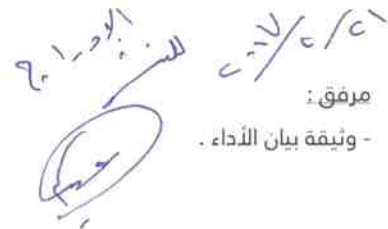 الإدراج
٢٠١٧/٢/٢١
مرفق :
- وثيقة بيان الأداء .